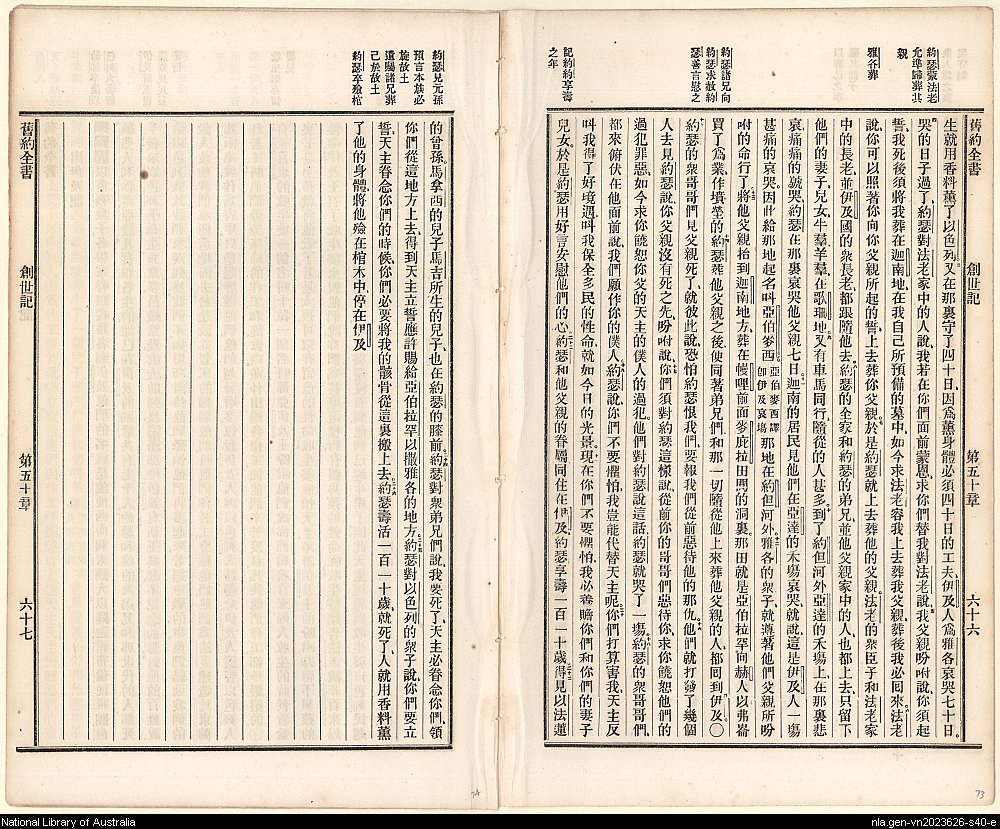 舊約全書 創世記 第五十章 六十六
約瑟蒙法老
允準歸葬其
親
雅各葬
約瑟諸兄向
約瑟求赦約
瑟善言慰之
享壽
之年
生就用香料薰了以色列又在那裏守了四十日因爲薰身體必須四十日的工夫伊及人爲雅各哀哭七十日。
哭的日子過了約瑟對法老家中的人說我若在你們面前蒙恩求你們替我對法老說我父親吩咐說你須起
誓我死後須將我葬在迦南地在我自己所預備的墓中如今求法老容我上去葬我父親葬後我必回來法老
說你可以照著你向你父親所起的誓上去葬你父親於是約瑟就上去葬他的父親法老的衆臣子和法老家
中的長老並伊及國的衆長老都跟隨他去約瑟的全家和約瑟的弟兄並他父親家中的人也都上去只留下
他們的妻子兒女牛羣羊羣在歌珊地又有車馬同行隨從的人甚多到了約但河外亞達的禾塲上在那裏悲
哀痛痛的號哭約瑟在那裏哀哭他父親七日迦南的居民見他們在亞達的禾塲哀哭就說這是伊及人一塲
甚痛的哀哭因此給那地起名呌亞伯麥西亞伯麥西譯卽伊及哀塲那地在約但河外雅各的衆子就遵著他們父親所吩
咐的命行了將他父親抬到迦南地方葬在幔哩前面麥庇拉田間的洞裏那田就是亞伯拉罕向赫人以弗崙
買了爲業作墳塋的約瑟葬他父親之後便同著弟兄們和那一切隨從他上來葬他父親的人都回到伊及〇
約瑟的衆哥哥們見父親死了就彼此說恐怕約瑟恨我們要報我們從前惡待他的那仇他們就打發了幾個
人去見約瑟說你父親沒有死之先吩咐說你們須對約瑟這樣說從前你的哥哥們惡待你求你饒恕他們的
過犯罪惡如今求你饒恕你父的天主的僕人的過犯他們對約瑟說這話約瑟就哭了一塲約瑟的衆哥哥們
都來俯伏在他面前說我們願作你的僕人約瑟說你們不要懼怕我豈能代替天主呢你們打算害我天主反
呌我得了好境遇呌我保全多民的性命就如今日的光景現在你們不要懼怕我必養贍你們和你們的妻子
兒女於是約瑟用好言安慰他們的心約瑟和他父親的眷屬同住在伊及約瑟享壽一百一十歲得見以法蓮
約瑟見元孫
預言本族必
旋故土
遺囑諸兄葬
己於故土
約瑟卒殮棺
的曾孫馬拿西的兒子馬吉所生的兒子也在約瑟的膝前約瑟對衆弟兄們說我要死了天主必眷念你們領
你們從這地方上去得到天主立誓應許賜給亞伯拉罕以撒雅各的地方約瑟對以色列的衆子說你們要立
誓天主眷念你們的時候你們必要將我的骸骨從這裏搬上去約瑟壽活一百一十歲就死了人就用香料薰
了他的身體將他殮在棺木中停在伊及
舊約全書 創世記 第五十章 六十七
74
73
National Library of Australia
nla.gen-vn2023626-s40-e